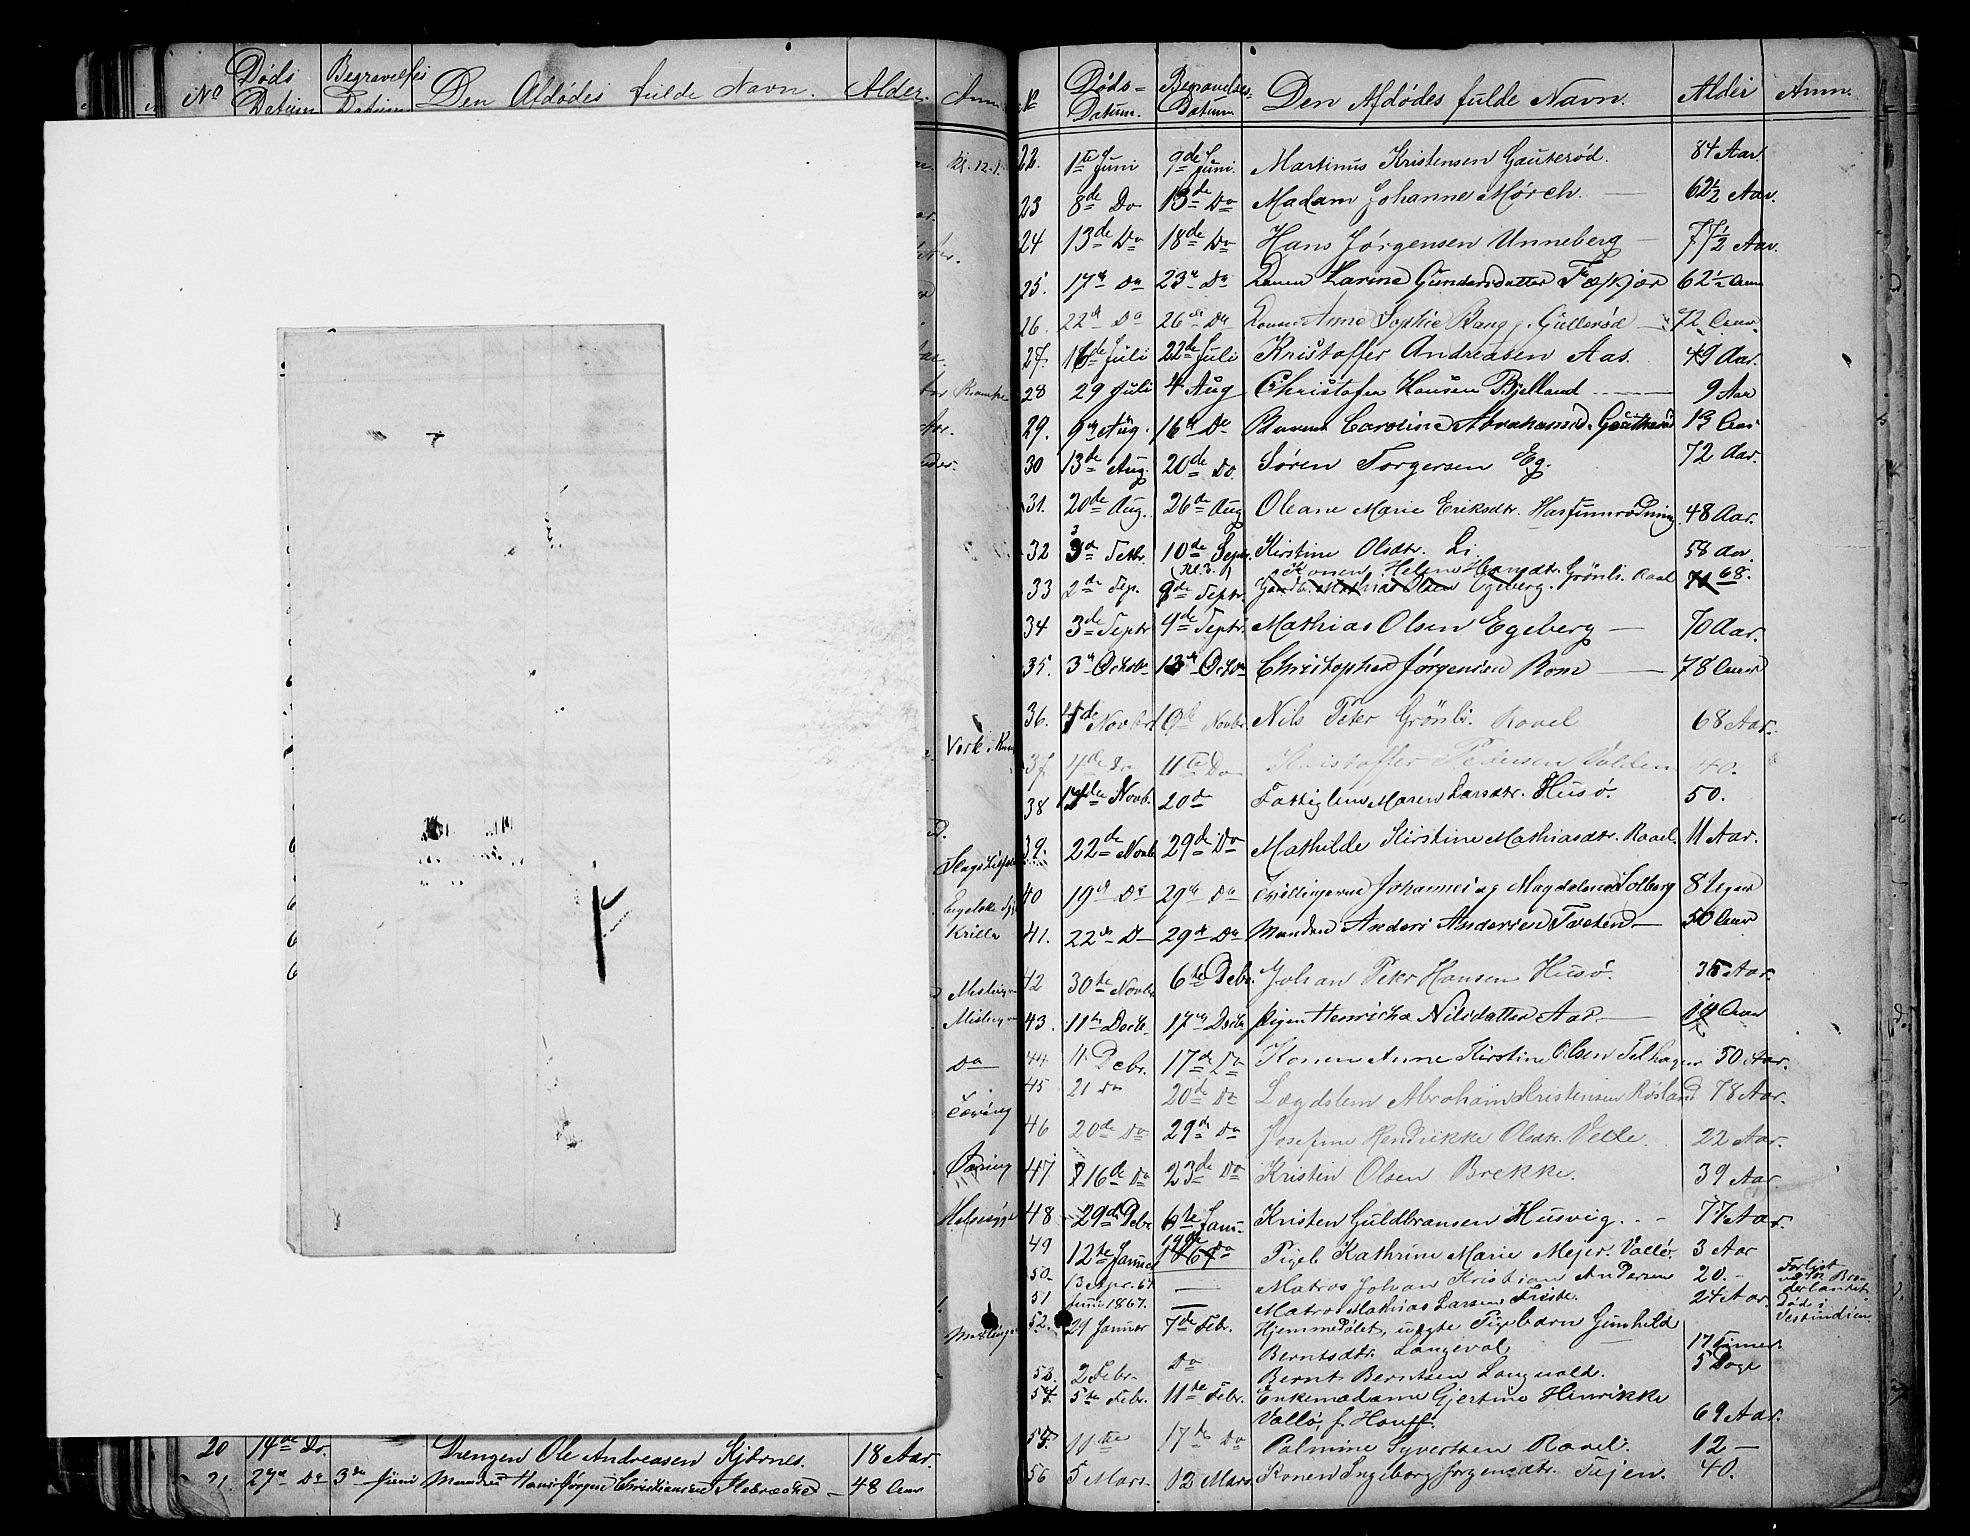 No Døds Datum Begravelses Datum Den Afdødes fulde Navn. Alder. Anm.
20 14de Do. Drengen Ole Andreasen Kjørnes 18 Aar.
21. 27de Do 3de Juni Manden Hans Jørgen Christiansen 48 Aar
Kl. 12-1.
Do
Døds- Datum. Begravelses Datum Den Afdødes fulde Navn. Alder Anm.
22. 1ste Juni 9de Juni. Martinus Kristensen Gauterød. 84 Aar
23 8de Do 13de Do Madam Johanne Mørch. 62½ Aar.
24 13de Do 18de Do Hans Jørgensen Unneberg — 77½ Aar.
25. 17de Do 23de Do Konen Larine Gundersdatter 62½ Aar
26. 22de Do 26de Do Konen Anne Sophie Bang, Gullerød — 72 Aar
27. 16de Juli 22de Juli Kristoffer Andreasen Aas. 49 Aar.
28 29 Juli 4 Aug Christofer Hansen Bjelland 9 Aar
29. 9de Aug. 16de Do Caroline Abrahamsd. Gauterød 13 Aar
30 13de Aug. 20de Do. Søren Torgersen Eg. 72 Aar.
31. 20de Aug. 26de Aug Oleane Marie Eriksdtr. 48 Aar.
32 3de Setbr. 10de Sept. Kirstine Olsdtr. Li. 58 Aar
33 2de Sep. 9de Septr. Konen Helene Hansdtr. Grönli. Raael 68.
34 3de Septr 9de Septr. Mathias Olsen Egeberg — 70 Aar.
35. 3de Octobr 13de Octobr Christopher Jørgensen Rom — 78 Aar
36. 4de Novbr 10de Novbr. Nils Peter Grönli. Raael 68 Aar.
37. 4de Do 11te Do Kristoffer Pedersen Valden 40.
38 14de Novb. 20de Fattiglem Maren Larsdtr. Husö. 50.
39. 22de Novb 29de Do Mathilde Kirstine Mathiasdtr. Raael. 11 Aar.
40 19de Do 29de Do Tvillingerne Johannes og Magdalene Solberg 8 Uger
41. 22de D— 29de Do Manden Anders Andersen Tveten — 50 Aar
42 30te Novbr 6te Debr. Johan Peter Hansen Husö. 36 Aar.
43. 11te Decbr. 17de Decbr Pigen Henricha Nilsdatter Aas — Aar
44 11 Debr. 17de Do Konen Anne Kirstine Olsen 50 Aar.
45 21 Do 20de Do Lægdslem Abraham Kristensen Røsland 78 Aar.
46 20de Do 29de Do Josefine Hendrikke Olsdtr. Velle. 22 Aar.
47 16de Do 23de Do Kristin Olsen Brekke. 39 Aar.
48 29de Debr 6te Janu- Kristen Guldbransen Husvig. 77 Aar.
49 12te Januar 19de Do Pigeb. Kathrine Marie Mejer. Vallö. 3 Aar
50. 13 Apr. 67 — Matros Johan Kristian Andersen 20. — Forlist
51 Juni 1867. — Matros Mathias Larsen 24 Aar. Død i Vestindien
52. 29 Januar 7de Febr. Hjemmedøbt, uægte Pigebarn Gunhild
Berntsdtr. Langeval, 17 Timer.
53. 2 Febr. Do Bernt Berntsen Langvald. 5 Dage
54. 5te Febr. 11te Febr. Enkemadame Gjertine Henrikke
Vallö, f. Hauff. 69 Aar.
55. 11te 17de Do Palmine Syvertsen Raael. 12 —
56 5 Mars 12 Mars Konen Ingeborg Jørgensdtr. Tejen. 40.